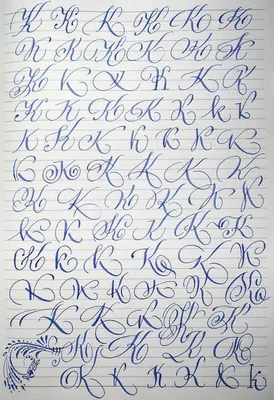 K K K K K K
K K K K K K
K K K K K K
K K K K K k K
K K K K K K K
K K K K K K
K K K K K K
K K K K K K
K k K K K K
K K K K K K
K K K K K
K K K K
K K K K K k